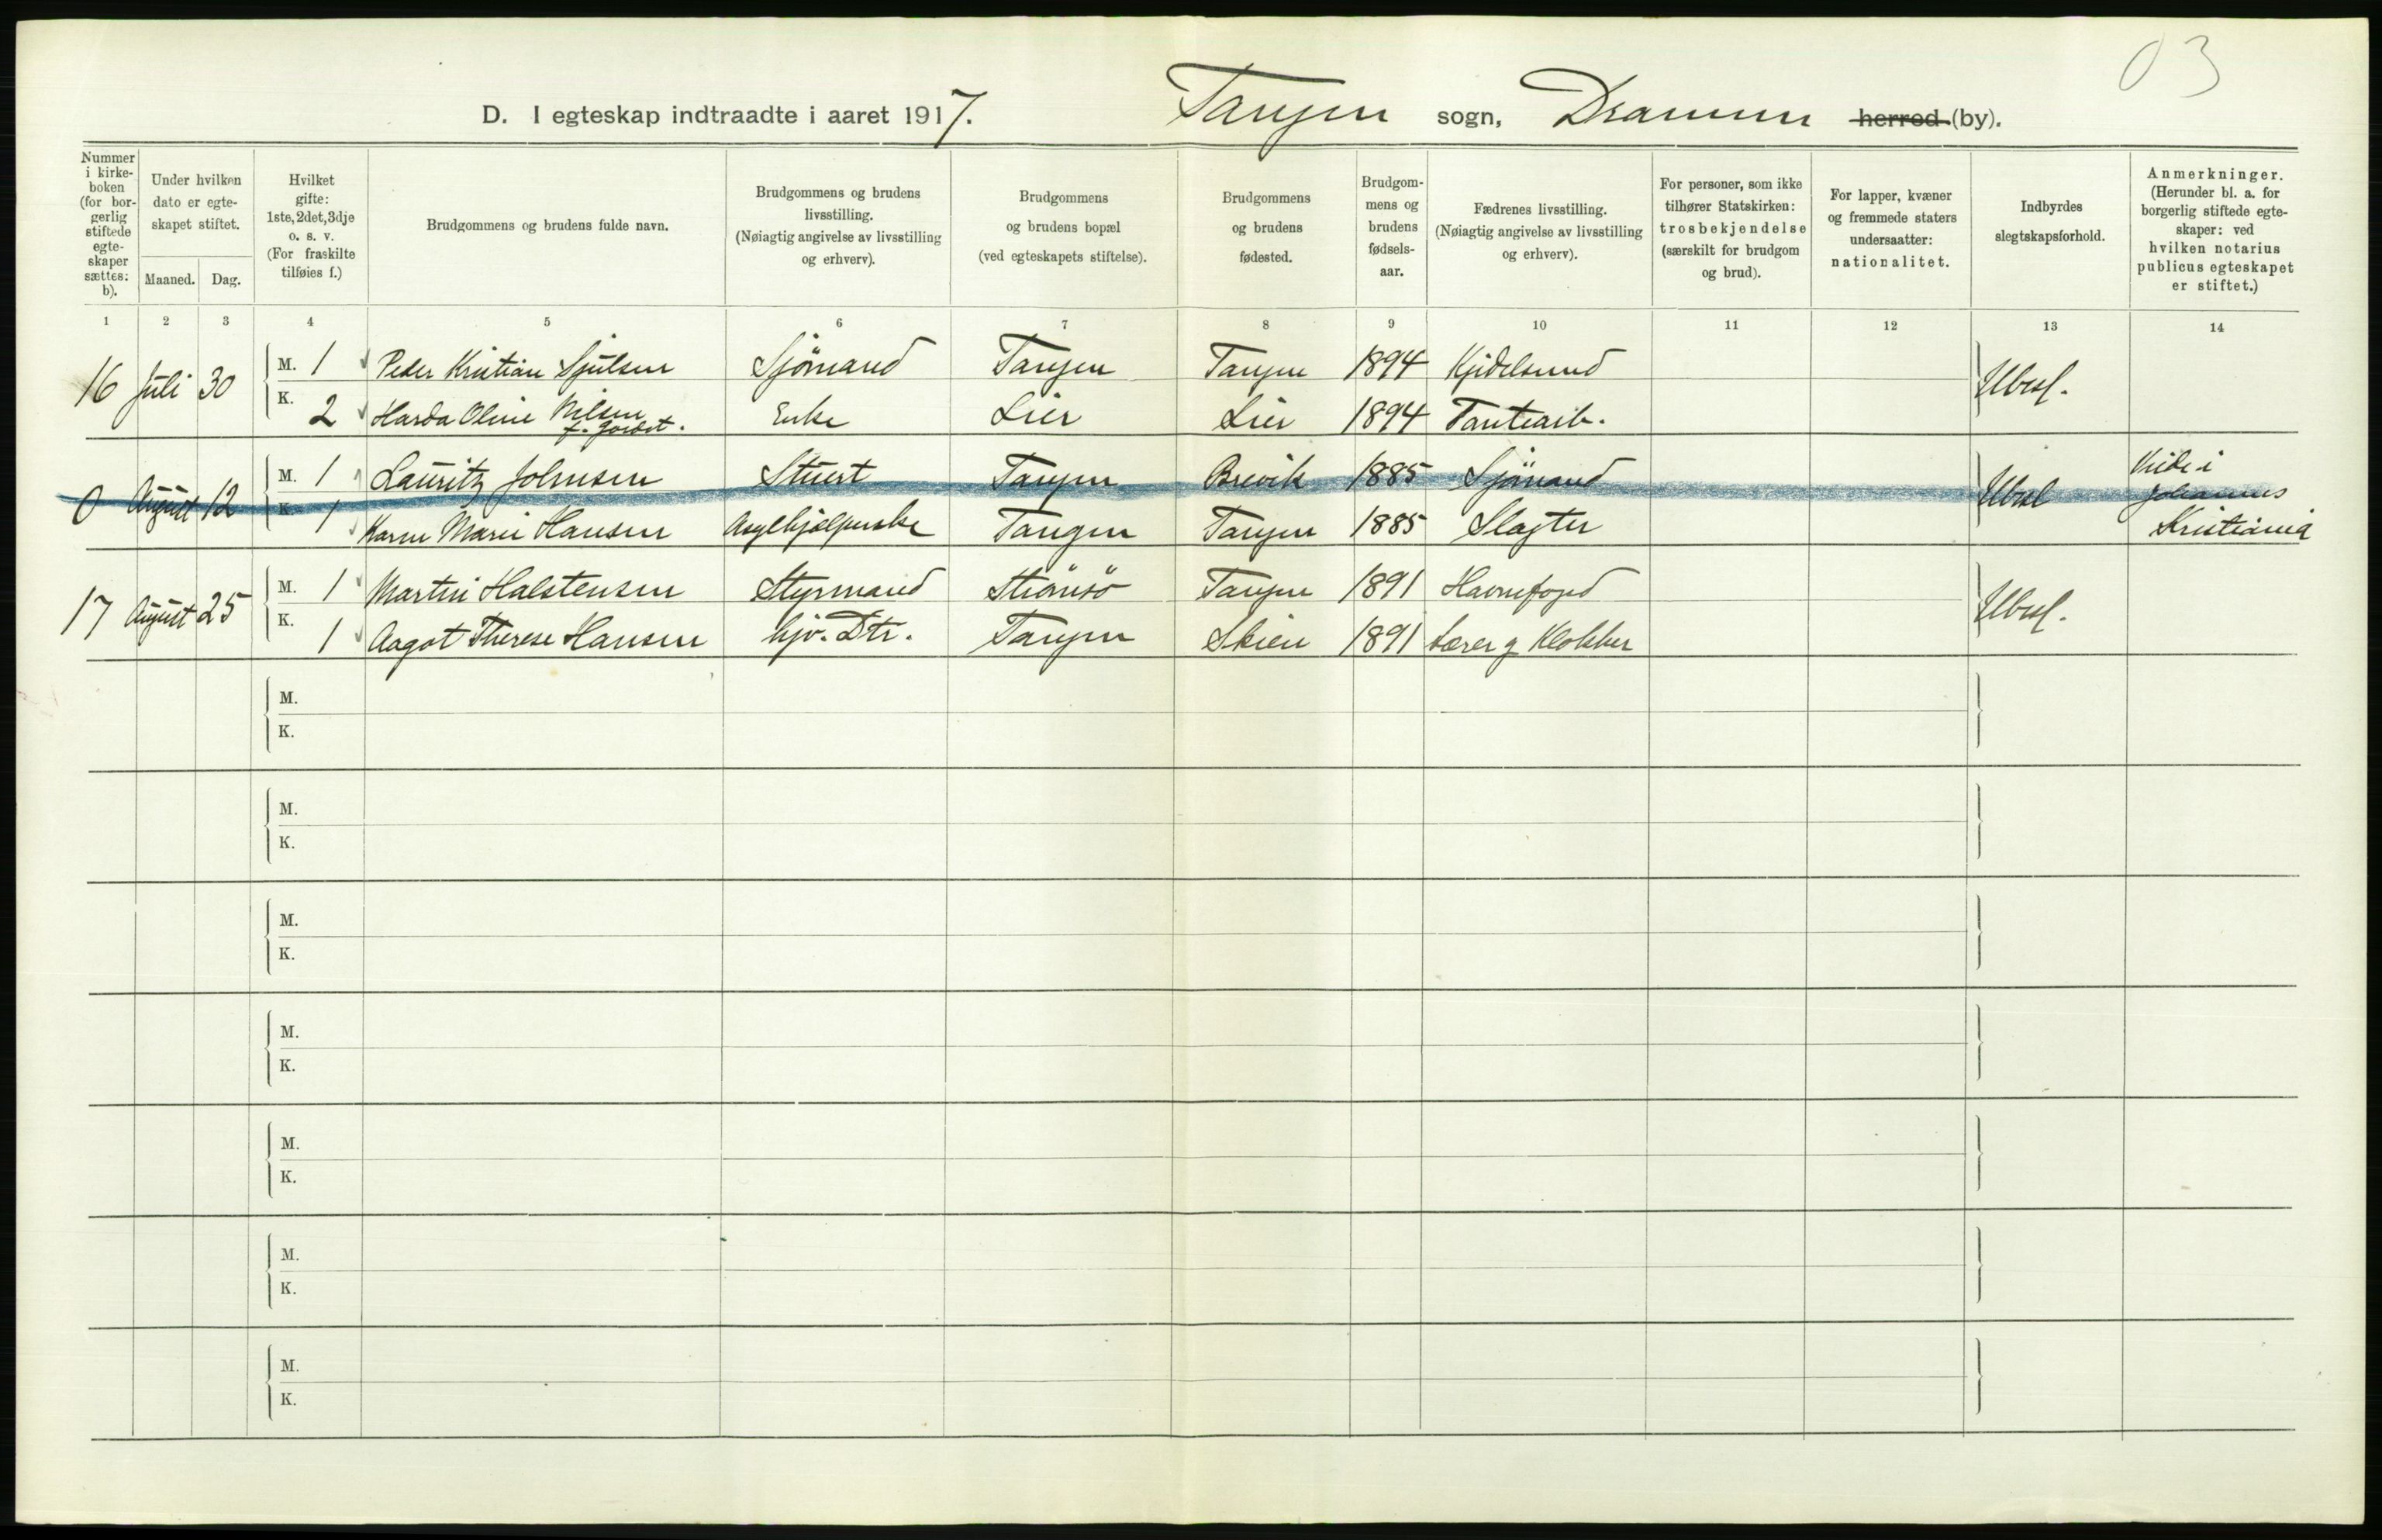 03
D. I egteskap indtraadte i aaret 1917. Tangen sogn, Drammen herred (by).
Nummer i kirke-boken (for bor-gerlig stiftede egte-skaper sættes: b).
Under hvilken dato er egte-skapet stiftet.
Maaned. Dag.
Hvilket gifte: 1ste, 2det, 3dje o. s. v. (For fraskilte tilføies f.)
Brudgommens og brudens fulde navn.
Brudgommens og brudens livsstilling. (Nøiagtig angivelse av livsstilling og erhverv).
Brudgommens og brudens bopæl (ved egteskapets stiftelse).
Brudgommens og brudens fødested.
Brudgom-mens og brudens fødsels-aar.
Fædrenes livsstilling. (Nøiagtig angivelse av livsstilling og erhverv).
For personer, som ikke tilhører Statskirken: trosbekjendelse (særskilt for brudgom og brud).
For lapper, kvæner og fremmede staters undersaatter: nationalitet.
Indbyrdes slegtskapsforhold.
Anmerkninger. (Herunder bl. a. for borgerlig stiftede egte-skaper: ved hvilken notarius publicus egteskapet er stiftet.)
1 2 3 4 5 6 7 8 9 10 11 12 13 14
16 Juli 30 M. 1 Peder Kristian Sjulsen Sjömand Tangen Tangen 1894 Ubesl.
K. 2 Harda Oline Nilsen Enke Lier Lier 1894 Tomtearb.
0 August 12 M. 1 Lauritz Johnsen Stuert Tangen Brevik 1885 Sjömand Ubesl Viede i
K. 1 Karen Marie Hansen Asylhjælperske Tangen Tangen 1885 Slagter Johannes
Kristiania
17 August 25 M. 1 Martin Halstensen Styrmand Strömsö Tangen 1891 Havnefoged Ubesl.
K. 1 Aagot Therese Hansen hjv. Dtr. Tangen Skien 1891 Lærer og Klokker
M.
K.
M.
K.
M.
K.
M.
K.
M.
K.
M.
K.
M.
K.